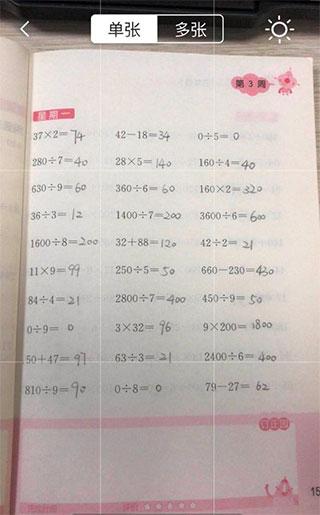 单张 多张
第3周
星期一
37×2=74 42－18=34 0÷5=0
280÷7=40 28×5=140 160÷4=40
630÷9=60 360÷6=60 160×2=320
36÷3=12 1400÷7=200 3600÷6=600
1600÷8=200 32＋88=120 42÷2=21
11×9=99 250÷5=50 660－230=430
84÷4=21 2800÷7=400 450÷9=50
0÷9=0 3×32=96 9×200=1800
50＋47=97 63÷3=21 2400÷6=400
810÷9=90 0÷8=0 79－27=62
15